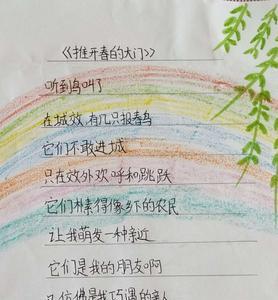 《推开春的大门》
听到鸟叫了
在城效,有几只报春鸟
它们不敢进城
只在效外欢呼和跳跃
它们朴素得像乡下的农民
让我萌发一种亲近
它们是我的朋友啊
仿佛是我巧遇的亲人